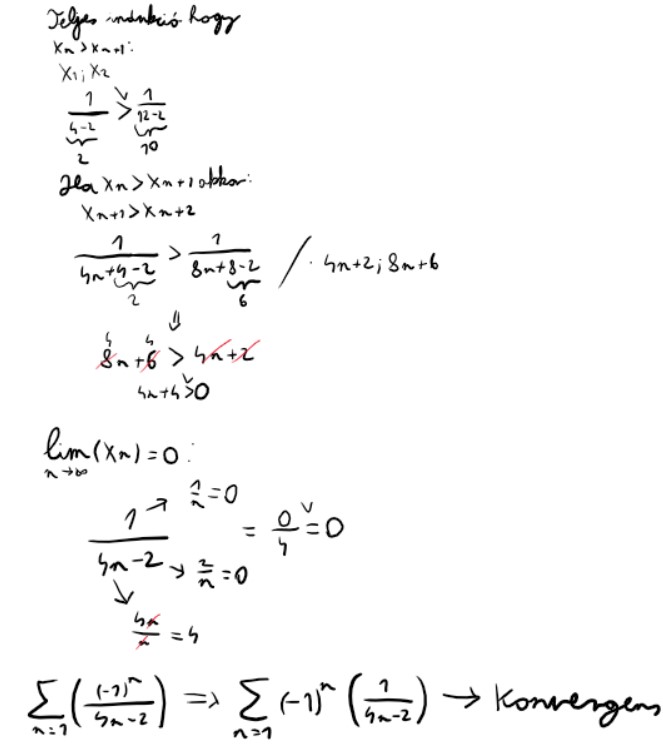 Teljes indukció hogy
Xn > Xn+1:
X1; X2
1/(4-2) > 1/(12-2)
2 10
Ha Xn > Xn+1 akkor:
Xn+1 > Xn+2
1/(4n+4-2) > 1/(8n+8-2) / · 4n+2; 8n+6
2 6
⇓
4 4
8n + 6 > 4n + 2
4n+4 > 0
lim n→∞ (Xn) = 0:
1/(4n-2) = 0/4 = 0
1/n = 0
2/n = 0
4n/n = 4
∑ n=1 ((-1)^n/(4n-2)) => ∑ n=1 (-1)^n (1/(4n-2)) → Konvergens